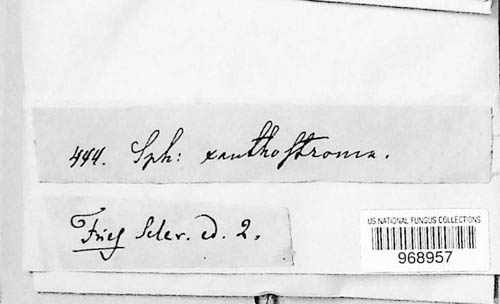 444. Sph: xanthostroma.
Fries Scler. d. 2.
US NATIONAL FUNGUS COLLECTIONS
968957